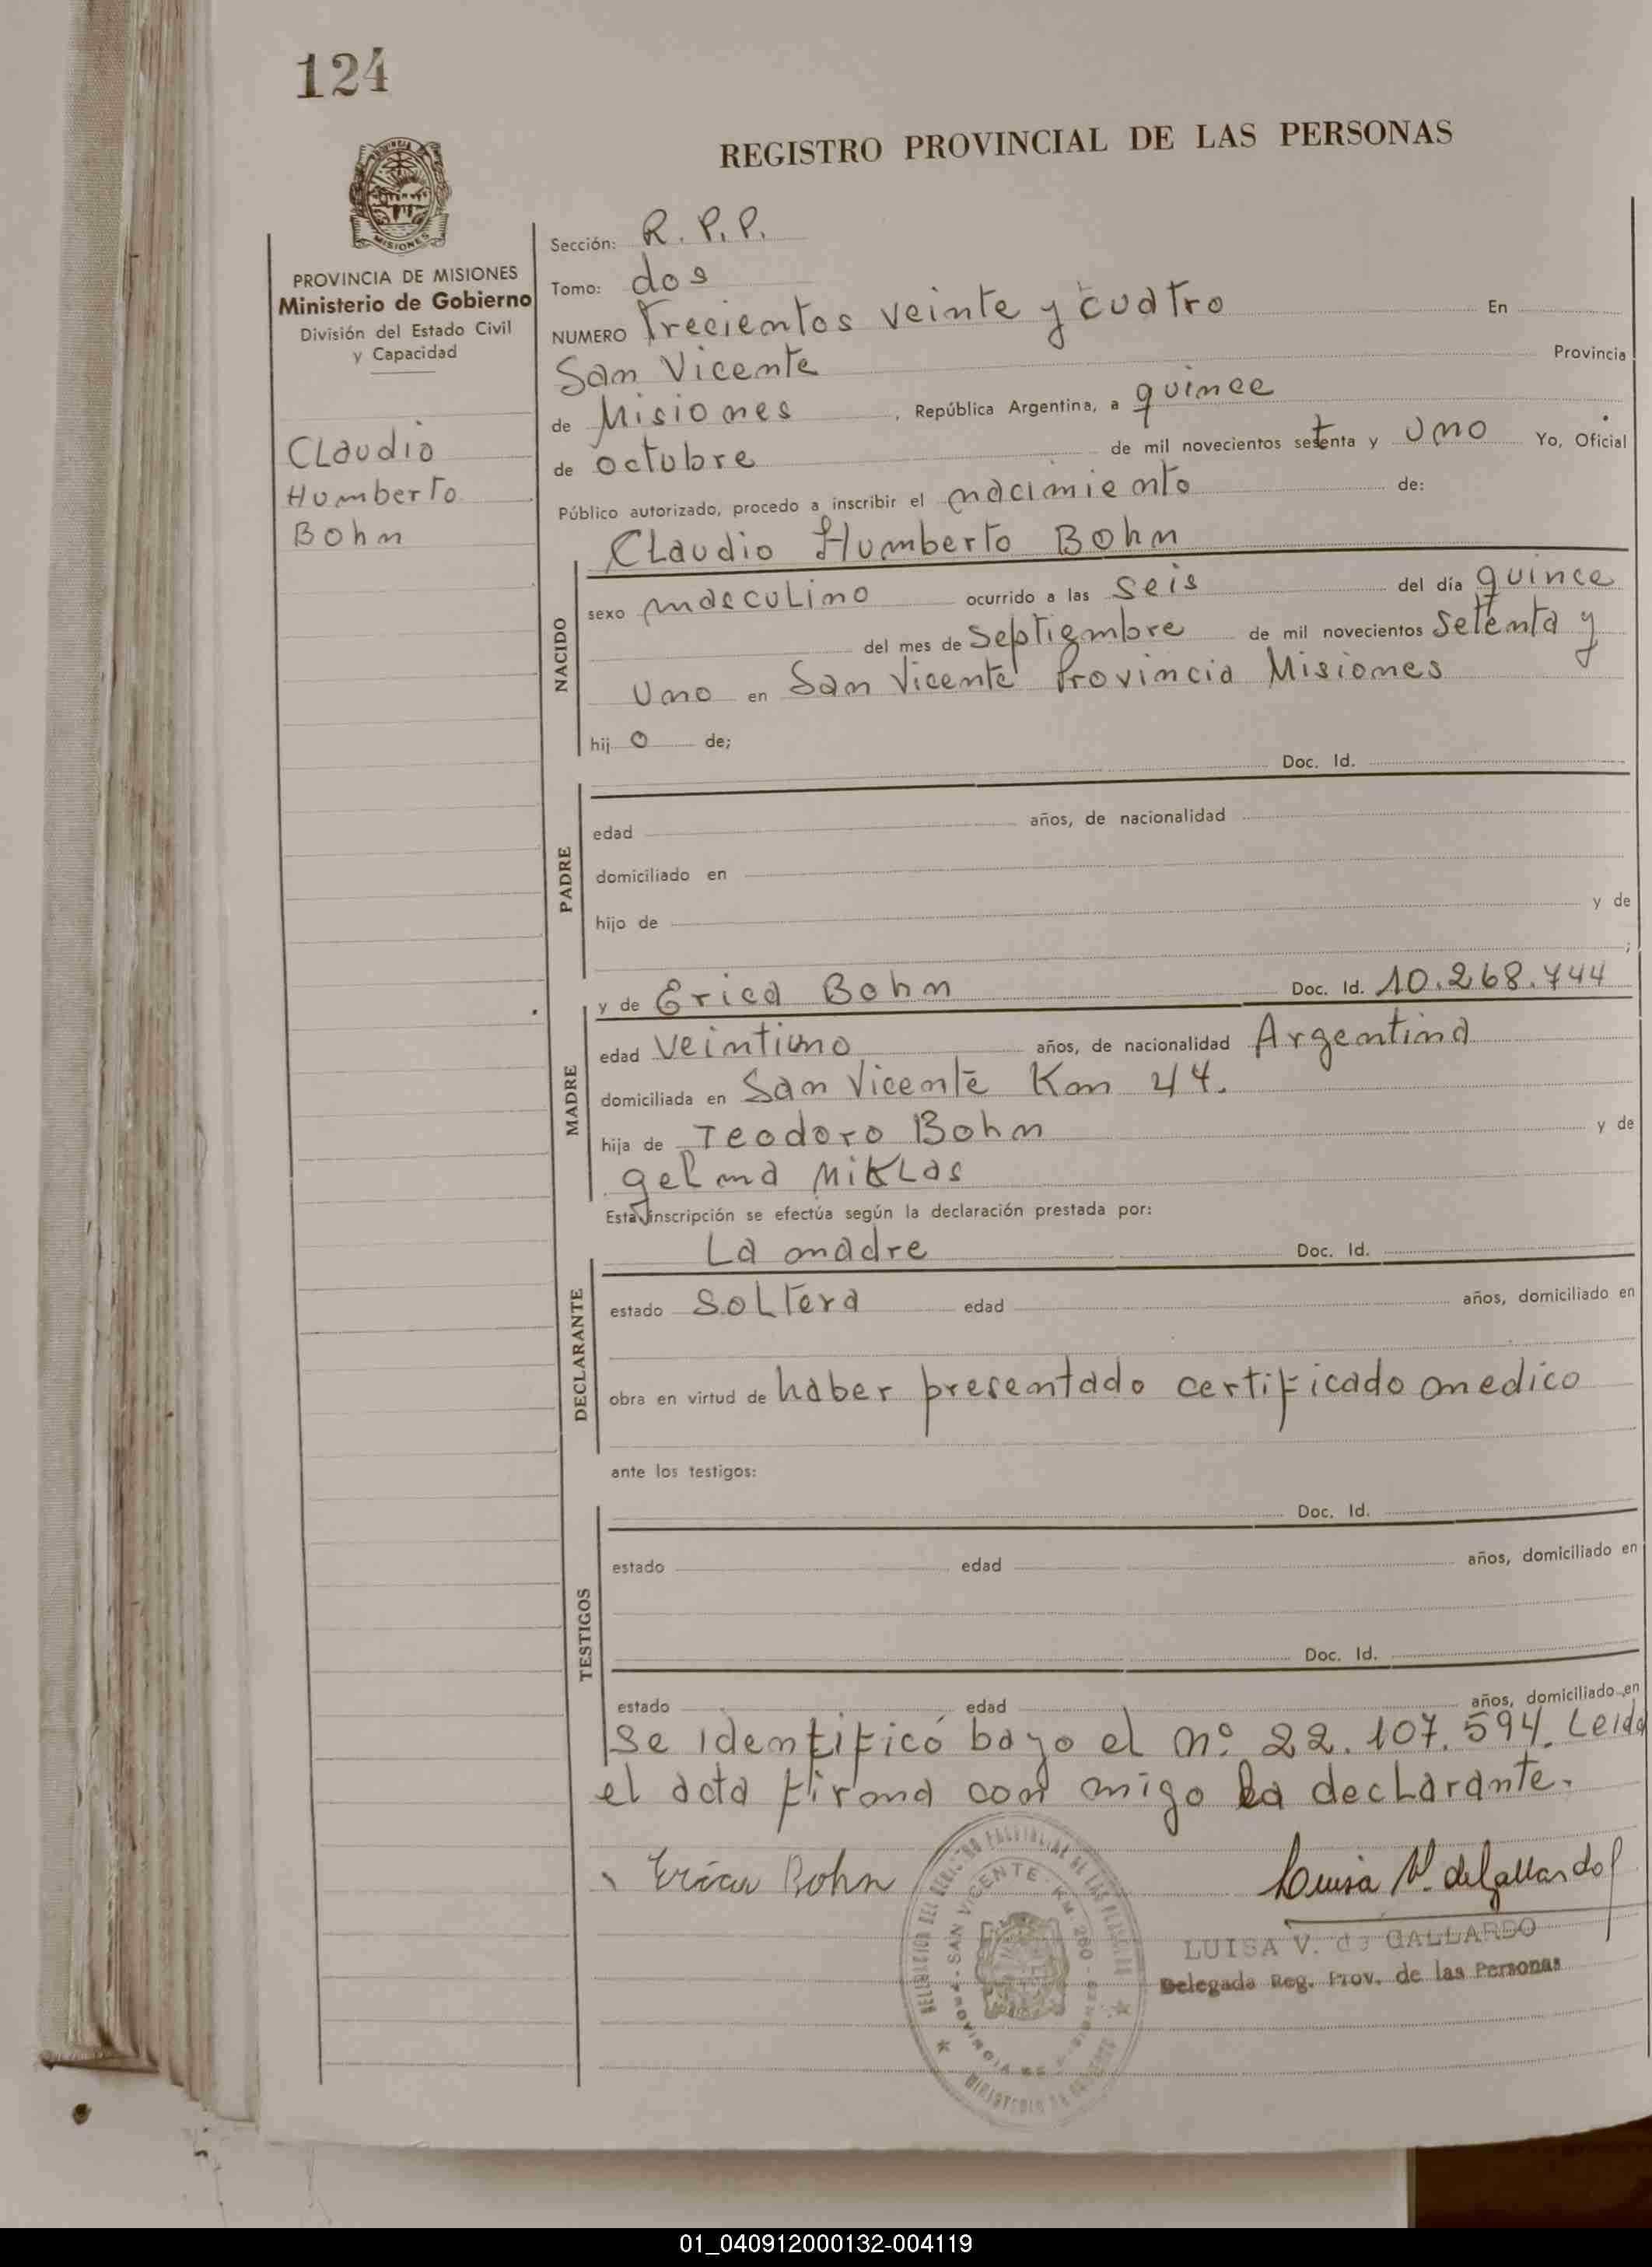 124
REGISTRO PROVINCIAL DE LAS PERSONAS
MISIONES
PROVINCIA DE MISIONES
Ministerio de Gobierno
División del Estado Civil
y Capacidad
Claudio
Humberto
Bohn
Sección: R. P. P.
Tomo: dos
NUMERO Trecientos veinte y cuatro En
San Vicente Provincia
de Misiones, República Argentina, a quince
de octubre de mil novecientos setenta y uno Yo, Oficial
Público autorizado, procedo a inscribir el nacimiento de:
Claudio Humberto Bohn
NACIDO
sexo masculino ocurrido a las seis del día quince
del mes de Septiembre de mil novecientos setenta y
uno en San Vicente Provincia Misiones
hijo de;
Doc. Id.
PADRE
edad años, de nacionalidad
domiciliado en
hijo de y de
;
MADRE
y de Erica Bohn Doc. Id. 10.268.744
edad veintiuno años, de nacionalidad Argentina
domiciliada en San Vicente Km 44.
hija de Teodoro Bohn y de
gelma Miklas
Esta inscripción se efectúa según la declaración prestada por:
La madre Doc. Id.
DECLARANTE
estado soltera edad años, domiciliado en
obra en virtud de haber presentado certificado medico
ante los testigos:
Doc. Id.
TESTIGOS
estado edad años, domiciliado en
Doc. Id.
estado edad años, domiciliado en
Se identificó bajo el nº 22.107.594. Leida
el acta firma con migo la declarante.
Erica Bohn
Luisa V. de Gallardo
LUISA V. de GALLARDO
Delegada Reg. Prov. de las Personas
SAN VICENTE - KM. 260
01_040912000132-004119